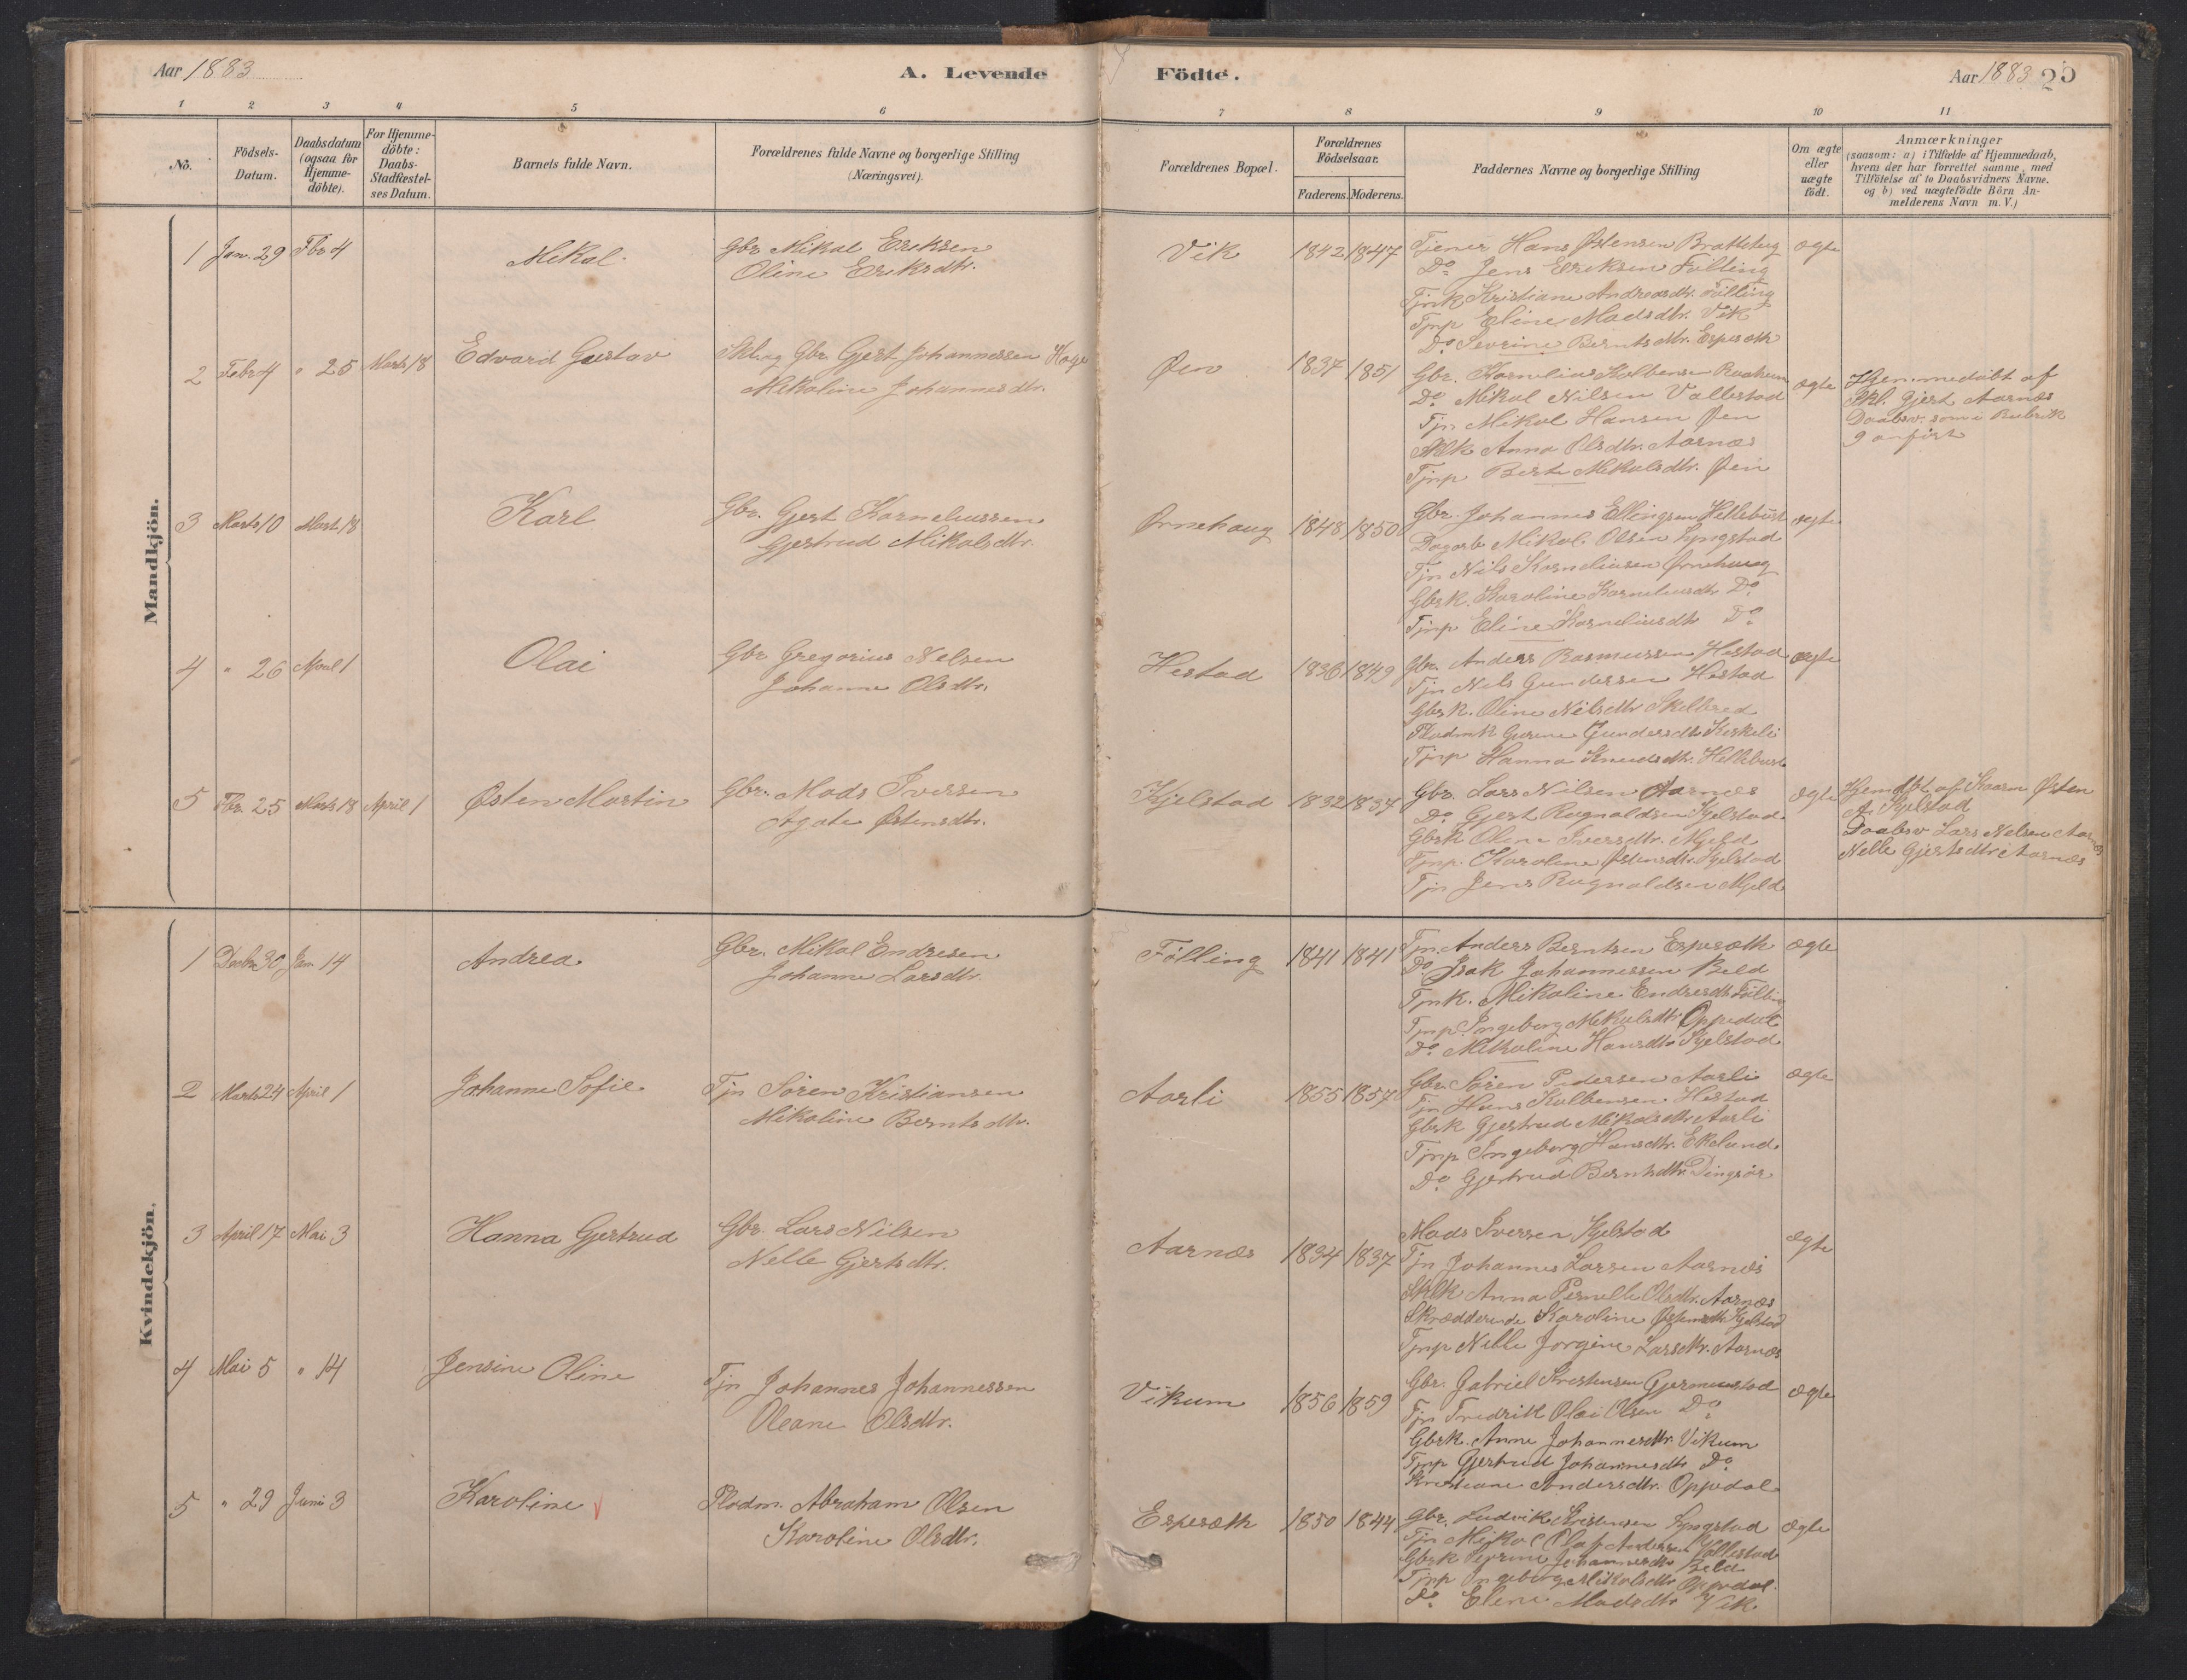 Aar 1883
A. Levende
Födte.
Aar 1883 20
1 2 3 4 5 6 7 8 9 10 11
No.
Födsels-
Datum.
Daabsdatum
(ogsaa for
Hjemme-
döbte).
For Hjemme-
döbte:
Daabs-
Stadfæstel-
ses Datum.
Barnets fulde Navn.
Forældrenes fulde Navne og borgerlige Stilling
(Næringsvei).
Forældrenes Bopæl.
Forældrenes
Födselsaar.
Faderens. Moderens.
Faddernes Navne og borgerlige Stilling
Om ægte
eller
uægte
födt.
Anmærkninger
(saasom: a) i Tilfælde af Hjemmedaab,
hvem der har forrettet samme, med
Tilföielse af to Daabsvidners Navne,
og b) ved uægtefödte Börn An-
melderens Navn m. V.)
Mandkjön.
1 Jan. 29 Fbr 4
Mikal
Gbr. Mikal Eriksen
Oline Eriksdtr.
Vik 1842 1847
Tjener Hans Østensen Brattehug
Do Jens Eriksen Fölling
Tjnk Kristiane Andreasdtr. Fölling
Tjnp Eline Madsdtr. Vik
Do Sevrine Berntsdtr. Espesæth
ægte
2 Febr 4 " 25 Marts 18
Edvard Gustav
Skl. og Gbr. Gjert Johannessen Hage
Mikaline Johannesdtr.
Øen 1837 1851
Gbr. Kornelius Kolbensen
Do Mikal Nilsen Vallestad
Tjn Mikal Hansen Øen
Anna Olsdtr. Aarnæs
Tjnp Berte Mikalsdtr. Øen
ægte
Hjemmedöbt af
Skl. Gjert Aarnæs
Daabsv. som i Rubrik
9 anfört
3 Marts 10 Marts 18
Karl
Gbr. Gjert Korneliussen
Gjertrud Mikalsdtr.
Ørnehaug 1848 1850
Gbr. Johannes Ellingsen Hellebust
Dagarb Mikal Olsen Lyngstad
Tjn Nils Korneliusen Ørnehaug
Gbrk. Karoline Korneliusdtr Do
Tjnp Eline Korneliusdtr Do
ægte
4 " 26 April 1
Olai
Gbr Gregorius Nelsen
Johanne Olsdtr.
Hestad 1836 1849
Gbr. Anders Rasmussen Hestad
Tjn Nils Gundersen Hestad
Gbrk. Oline Nilsdtr Skilbred
Pladmk Gundersdtr
Tjnp Hanna Knudsdtr. Hellebust
ægte
5 Fbr. 25 Marts 18 April 1
Østen Martin
Gbr. Mads Iversen
Agate Østensdtr.
Kjelstad 1832 1837
Gbr. Lars Nilsen Aarnæs
Do Gjert Ragnaldsen Kjelstad
Gbrk Oline Iversdtr. Mjeld
Tjnp. Karoline Østensdtr. Kjelstad
Tjn Jens Ragnaldsen Mjeld
ægte
Hjemdbt af Kaarm Østen
A. Kjelstad
Daabsv Lars Nelsen Aarnæs
Nelle Gjertsdtr Aarnæs
Kvindekjön.
1 Decbr 30 Jan 14
Andrea
Gbr. Mikal Endresen
Johanne Larsdtr.
Fölling 1841 1841
Tjn. Anders Berntsen Espesæth
Do Isak Johannessen Beld
Tjnk. Mikaline Endresdtr Fölling
Tjnp. Ingeborg Mikalsdtr Oppedal
Do Mikaline Hansdtr Kjelstad
ægte
2 Marts 24 April 1
Johanne Sofie
Tjn Sören Kristiansen
Mikaline Berntsdtr.
Aarli 1855 1857
Gbr. Sören Pedersen Aarli
Tjn Hans Kolbensen Hestad
Gbrk Gjertrud Mikalsdtr Aarli
Tjnp Ingeborg Hansdtr. Ekelund
Do Gjertrud Berntsdtr. Dingsör
ægte
3 April 17 Mai 3
Hanna Gjertrud
Gbr. Lars Nilsen
Nelle Gjertsdtr.
Aarnæs 1834 1837
Mads Iversen Kjelstad
Tjn Johannes Larsen Aarnæs
Sklk Anna Pernelle Olsdtr. Aarnæs
Skrædderinde Karoline Østensdtr. Kjelstad
Tjnp Nelle Jörgine Larsdtr. Aarnæs
ægte
4 Mai 5 " 14
Jensine Oline
Tjn Johannes Johannessen
Oleane Olsdtr.
Vikum 1856 1859
Gbr. Gabriel Kristensen Gjermundstad
Tjn Fredrik Olai Olsen Do
Gbrk. Anne Johannesdtr. Vikum
Tjnp Gjertrud Johannesdtr Do
Kristiane Andersdtr. Oppedal
ægte
5 " 29 Juni 3
Karoline
Pladm. Abraham Olsen
Karoline Olsdtr.
Espesæth 1850 1844
Gbr. Ludvik Kristensen Lyngstad
Tjn Mikal Olaf Andersen Vallestad
Gbrk Sevrine Johannesdtr Beld
Tjnp Ingeborg Mikalsdtr Oppedal
Do Eline Madsdtr Vik
ægte